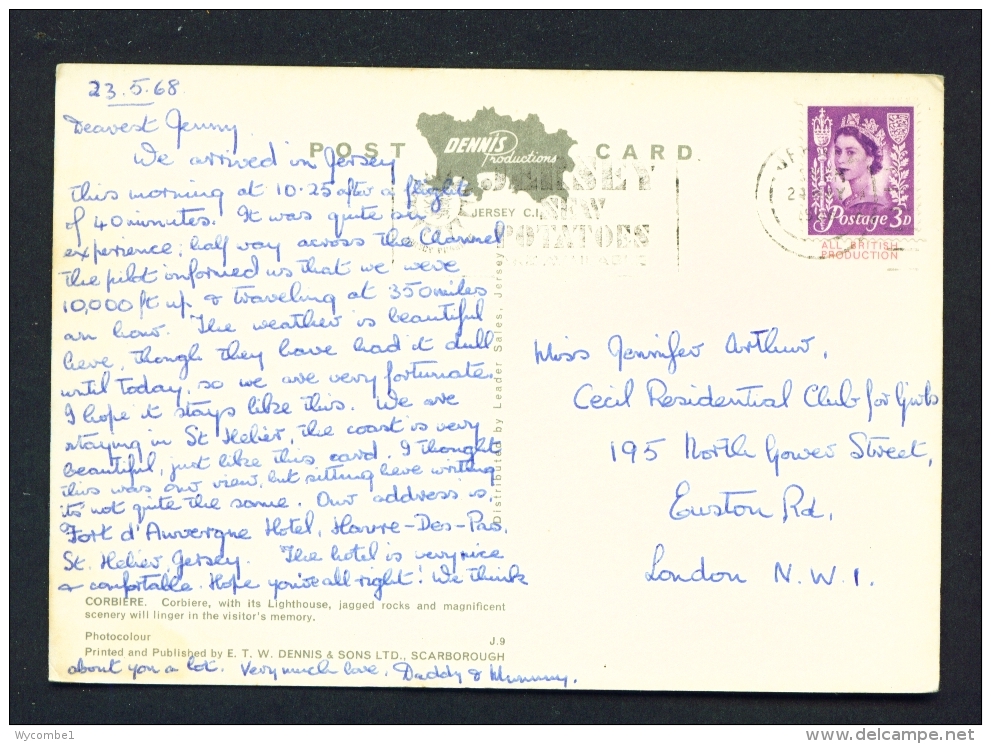 23.5.68
Dearest Jenny,
We arrived in Jersey
this morning at 10.25 after a flight
of 40 minutes. It was quite an
experience; half way across the Channel
the pilot informed us that we were
10,000 ft up & traveling at 350 miles
an hour. The weather is beautiful
here, though they have had it dull
until today, so we are very fortunate.
I hope it stays like this. We are
staying in St Helier, the coast is very
beautiful, just like this card. I thought
this was our view, but sitting here writing
its not quite the same. Our address is,
Fort d'Auvergne Hotel, Havre-Des-Pas,
St. Helier Jersey. The hotel is very nice
& comfortable. Hope you're all right! We think
CORBIERE. Corbiere, with its Lighthouse, jagged rocks and magnificent
scenery will linger in the visitor's memory.
Photocolour J.9
Printed and Published by E. T. W. DENNIS & SONS LTD., SCARBOROUGH
about you a lot. Very much love, Daddy & Mummy.
POST CARD
DENNIS
Productions
JERSEY C.I.
JERSEY
NEW
POTATOES
Distributed by Leader Sales, Jersey
Postage 3D
ALL BRITISH
PRODUCTION
Miss Jennifer Arthur,
Cecil Residential Club for Girls
195 North Gower Street,
Euston Rd,
London N.W.1.
Wycombe1
delcampe.net